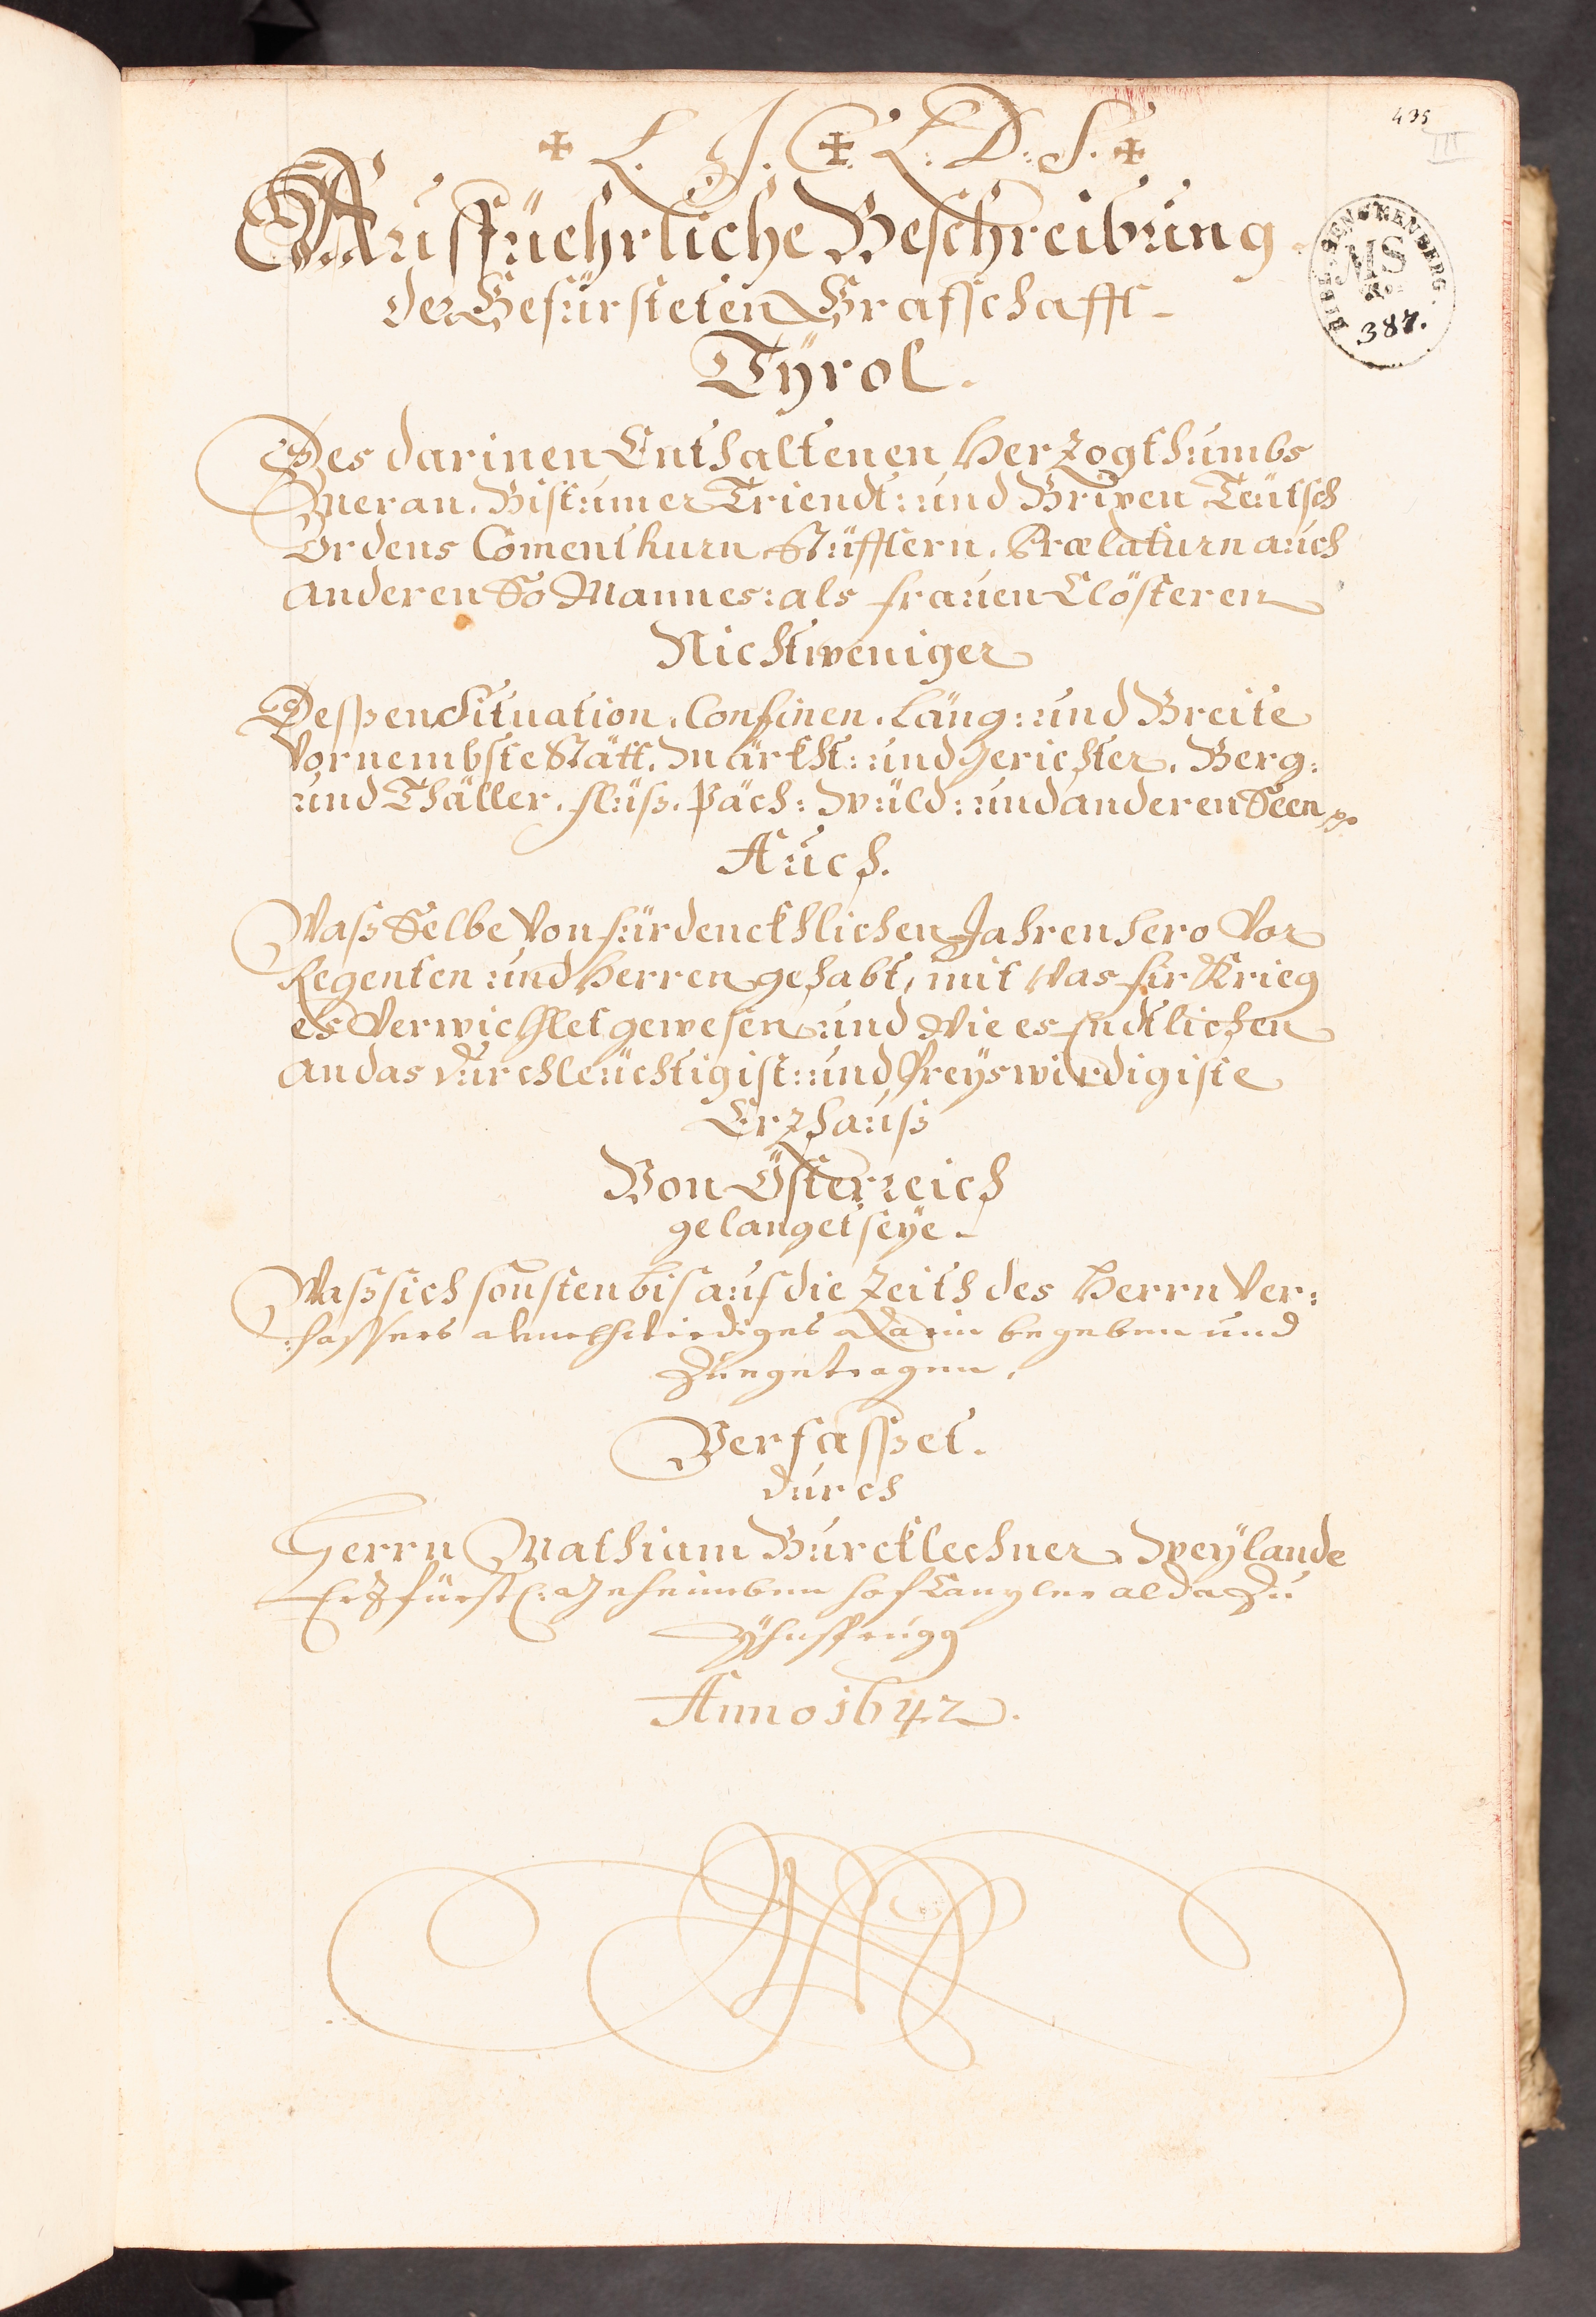 435
III
✠ L. J. C. ✠ L: D: S. ✠
Ausfüehrliche Beschreibung
der Gefürsteten Grafschafft
Tÿrol.
BIBL. SENCKENBERG.
MS
No.
387.
Des darinen Enthaltenen Herzogthumbs
Meran. Bistumer Triendt: und Brixen Teütsch
Ordens Comenthurn Stüfftern. Prælaturn auch
anderen So Mannes: als frauen Clösteren
Nicht weniger
Dessen Situation. Confinen. Läng: und Breite
Vornembste Stätt. Märkht: und Gerichter. Berg:
und Thäller. flüss. Päch: Wüld: und anderen Seen
Auch.
Wass Selbe Von fürdenckhlichen Jahren hero Vor
Regenten und Herren gehabt, mit Was fir Krieg
es Verwichlet gewesen und Wie es Endtlichen
an das durchleüchtigist: und Preÿswirdigiste
Erzhauss
Von Österreich
gelanget seÿe
Wass sich sonsten bis auf die Zeith des Herrn Ver:
:fassers denckhwirdiges darin begeben und
Zuegetragen.
Verfasset.
durch
Herrn Mathiam Burcklechner. Weÿlande
Erzfürstl: Geheimben hof Canzler alda Zu
Ÿhnsprugg
Anno 1642.